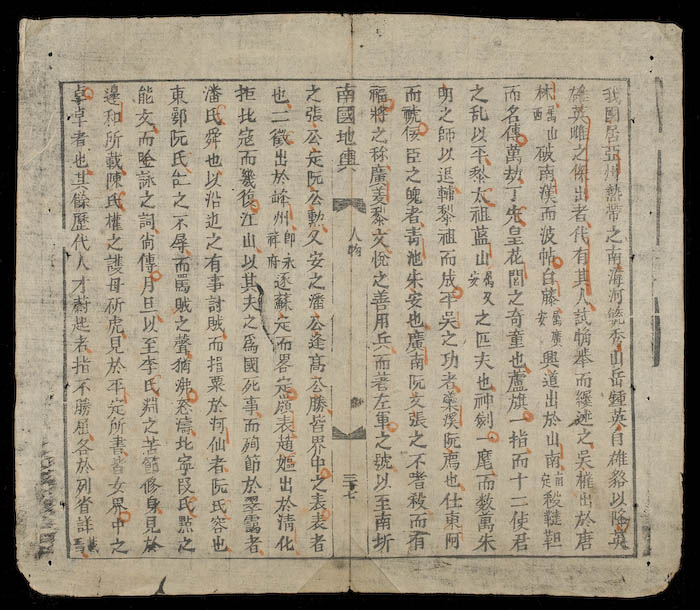 我國居亞州熱帶之南海河毓秀山岳鍾英自雄貉以降英
雄英雌之傑出者代有其人試暢舉而縷述之吳權出於唐
林屬山西破南漢而波帖白藤屬廣安興道出於山南南定殺韃靼
而名傳萬劫丁先皇花閭之奇童也蘆旗一指而十二使君
之乱以平黎太祖藍山屬乂安之匹夫也神劍一麾而数萬朱
明之師以退輔黎祖而成平吳之功者蘂溪阮廌也仕東阿
而褫侫臣之魄者青池朱安也廣南阮文張之不嗜殺而有
福將之称廣羙黎文悅之善用兵而著左軍之號以至南圻
南國地輿
人物
三十七
之張公定阮公勳乂安之潘公逢髙公勝皆界中之表表者
也二徵出於峰州即永祥府逐蘇定而畧定嶺表趙嫗出於清化
拒比寇而幾復江山以其夫之爲國死事而殉節於翠靄者
潘氏舜也以沿边之有事討賊而指粟於河仙者阮氏容也
東鄂阮氏之不辱而罵賊之聲猶沸怒濤北寧段氏點之
能文而唫詠之詞尙傳月旦以至李氏淵之苦節修身見於
邊和所載陳氏權之護母斫虎見於平定所書皆女界中之
卓卓者也其餘歷代人才蔚起者指不勝屈各於列省詳載焉